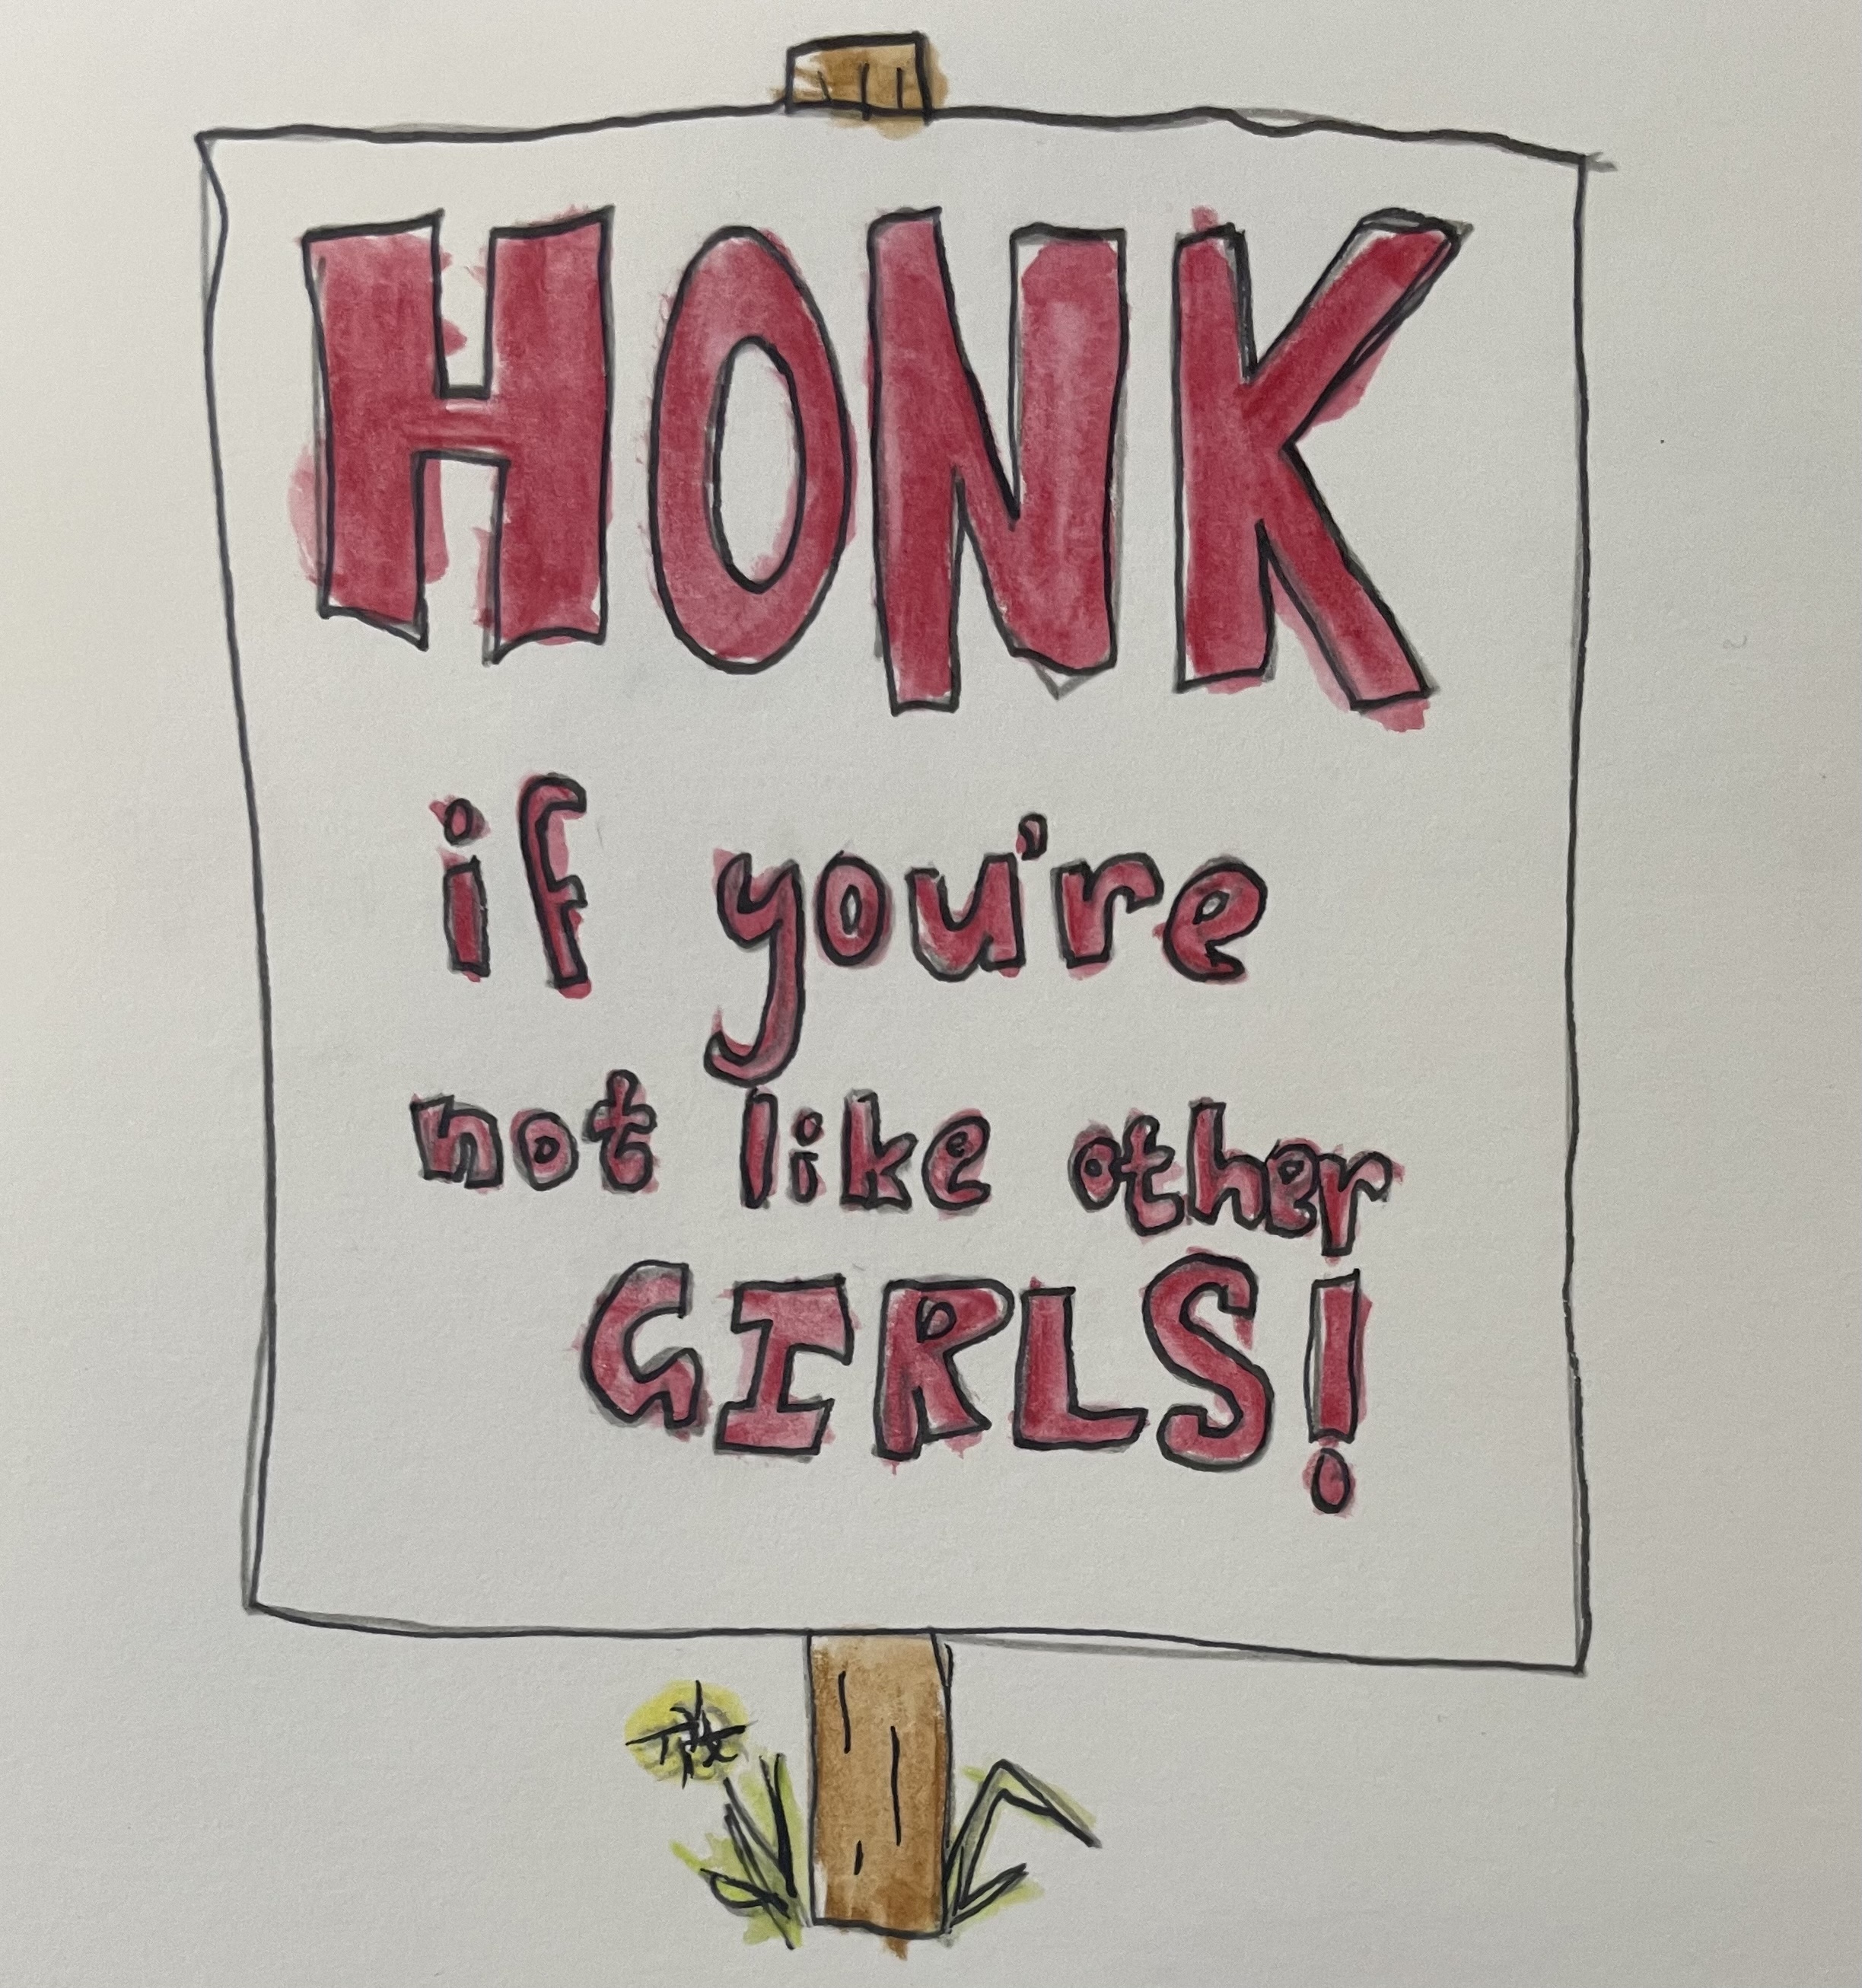 HONK
if you're
not like other
GIRLS!